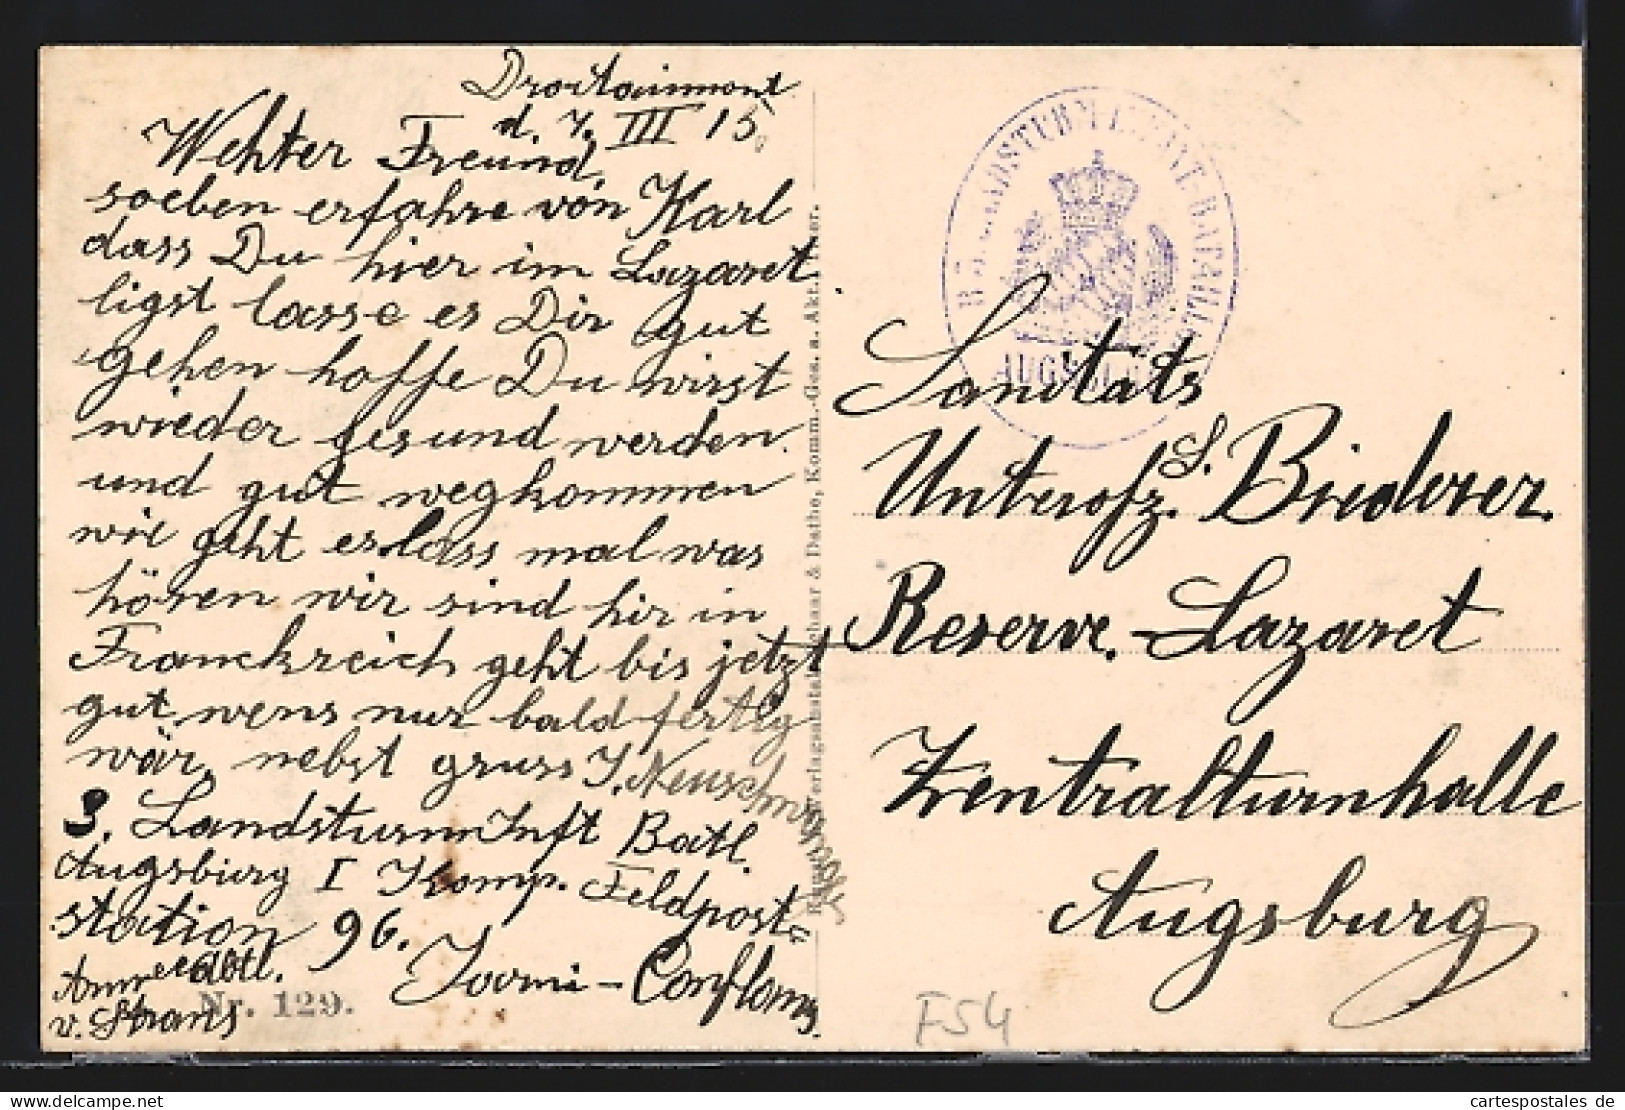 Droitaumont
d. 7. III 15
Wehter Freund,
soeben erfahre von Karl
dass Du hier im Lazaret
ligst lasse es Dir gut
gehen hoffe Du wirst
wieder gesund werden
und gut wegkommen
wie geht es lass mal was
hören wir sind hir in
Franckreich geht bis jetzt
gut wens nur bald fertig
wär, nebst gruss J.
3. Landsturm Inft Batl.
Augsburg I Komp. Feldpost
station 96.
Armee abtl.
v. Strans
Jarni - Conflans
Nr. 129.
Verlagsanstalt Schaar & Dathe, Komm.-Ges. a. Akt., Trier.
LANDSTURM BATAILL
AUGSBURG
Sanitäts
Unterofz. S. Biederer
Reserve-Lazaret
Zentralturnhalle
Augsburg
F54
www.cartespostales.de
cartespostales de